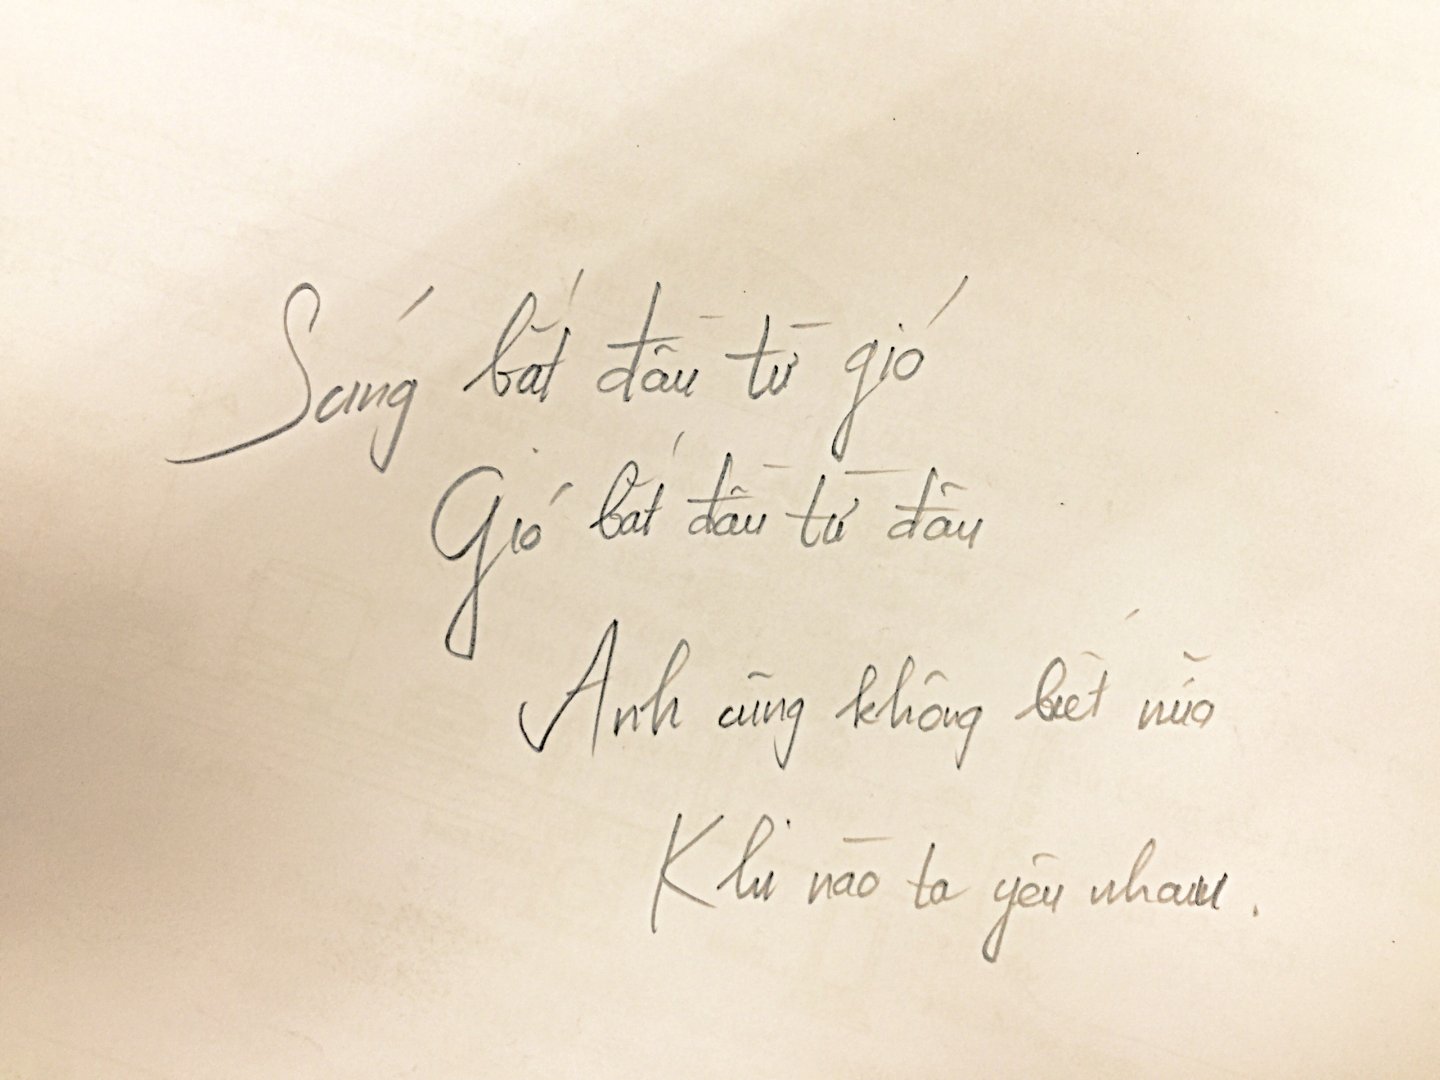 Sóng bắt đầu từ gió
Gió bắt đầu từ đâu
Anh cũng không biết nữa
Khi nào ta yêu nhau.